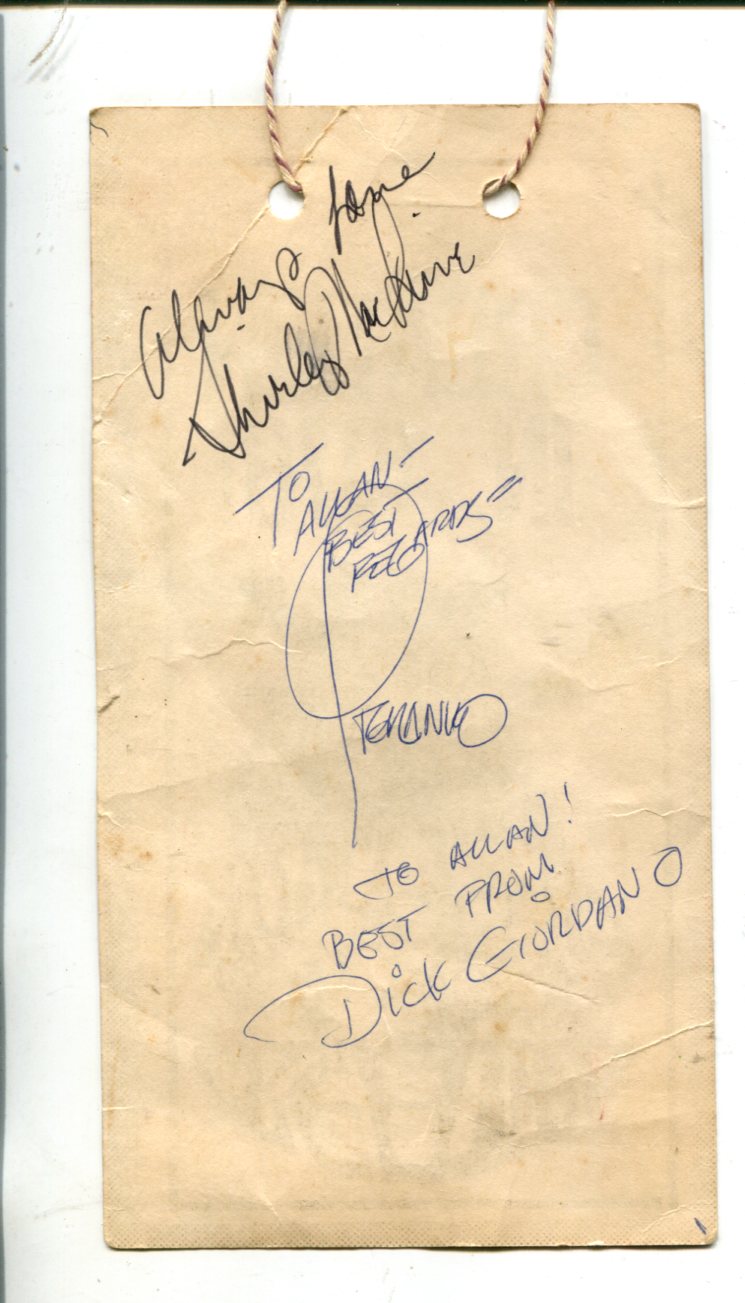 Always love
Shirley MacLaine
TO
ALLAN-
BEST
REGARDS-
STERANKO
TO ALLAN!
BEST FROM
DICK GIORDANO